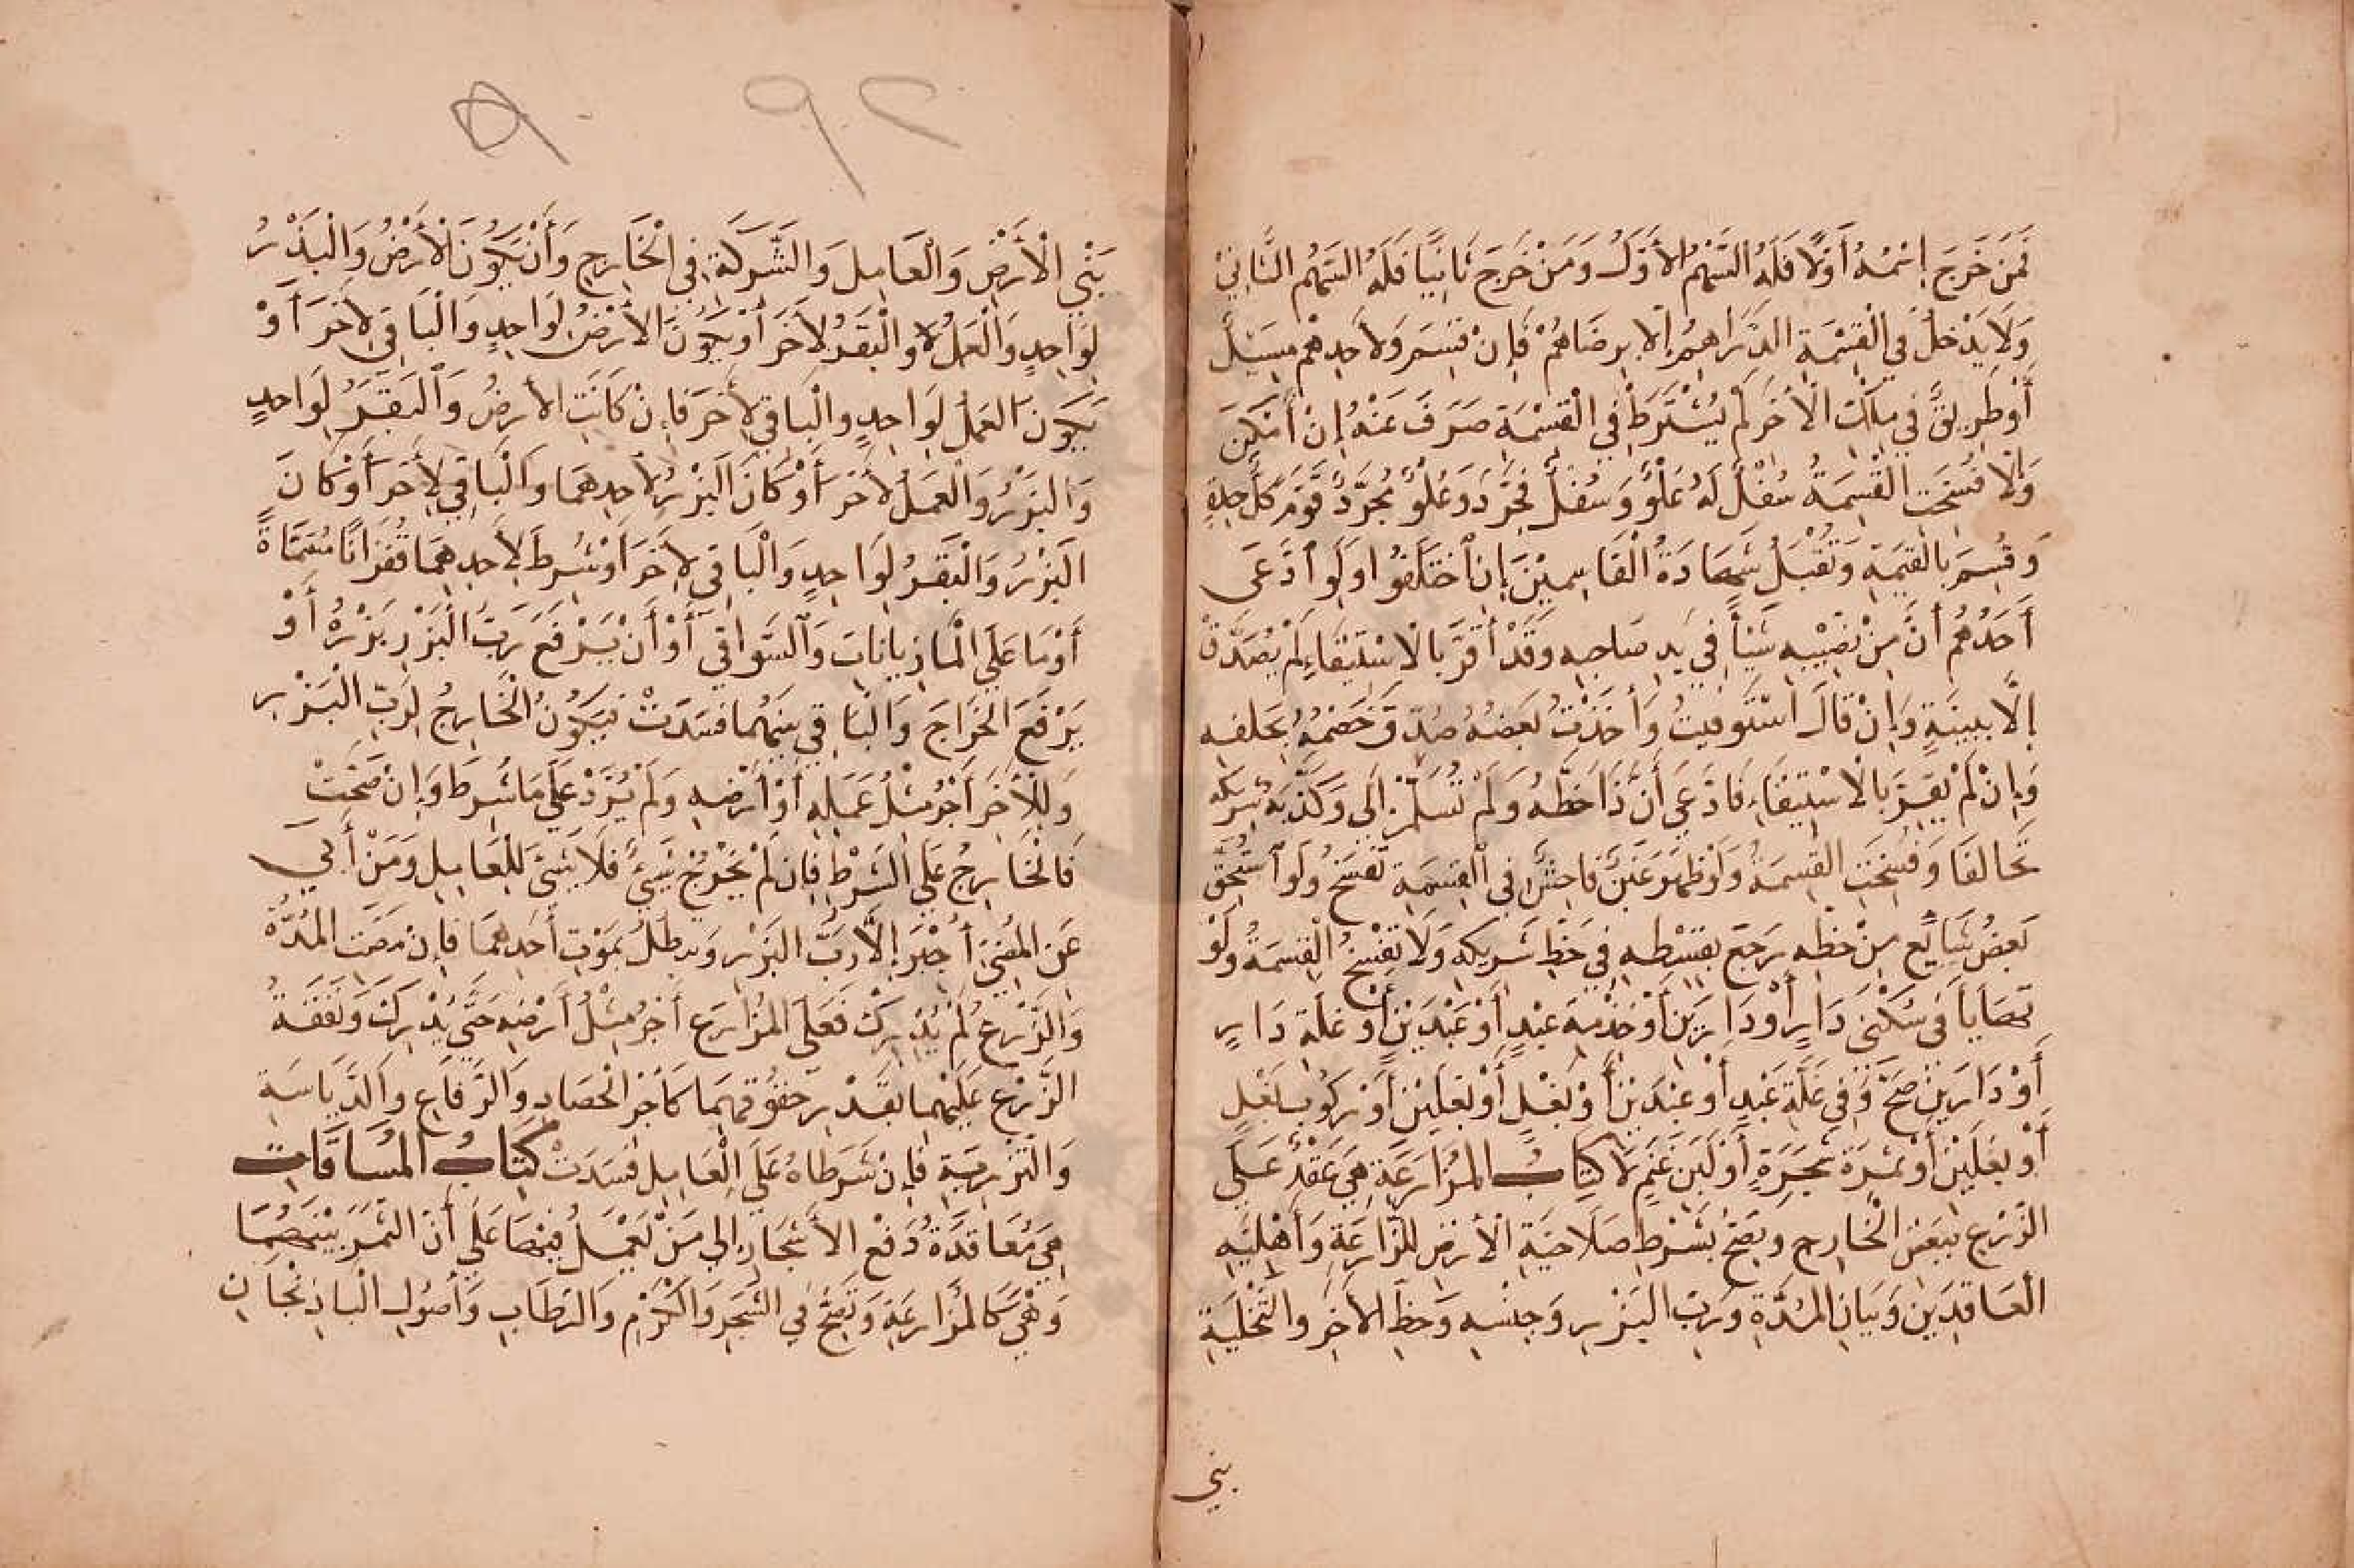 فَمَنْ خَرَجَ إِسْمُهُ أَوَّلًا فَلَهُ السَّهْمُ الأَوَّلُ وَمَنْ خَرَجَ ثَانِيًا فَلَهُ السَّهْمُ الثَّانِيْ
وَلَا يَدْخُلُ فِي الْقِسْمَةِ الدَّرَاهِمُ إِلَّا بِرِضَاهُمْ فَإِنْ قُسِمَ وَلِأَحَدِهِمْ مَسِيْلٌ
أَوْطَرِيقٌ فِي مِلْكِ الْآخَرِ لَمْ يُشْتَرَطْ فِي الْقِسْمَةِ صَرَفَ عَنْهُ إِنْ أَمْكَنَ
وَإِلَّا فُسِخَتِ الْقِسْمَةُ سُفْلٌ لَهُ عُلْوٌ وَسُفْلٌ مُجَرَّدٌ وَعُلْوٌ مُجَرَّدٌ قُوِّمَ كُلٌّ حِدَةٍ
وَقُسِمَ بِالْقِيْمَةِ وَتُقْبَلُ شَهَادَةُ الْقَاسِمِيْنَ إِنِ اخْتَلَفُوا وَلَوِ ادَّعَى
أَحَدُهُمْ أَنَّ مِنْ نَصِيْبِهِ شَيْأً فِي يَدِ صَاحِبِهِ وَقَدْ أَقَرَّ بِالْاِسْتِيْفَاءِ لَمْ يُصَدَّقْ
إِلَّا بِبَيِّنَةٍ وَإِنْ قَالَ اسْتَوْفَيْتُ وَأَخَذْتَ بَعْضَهُ صُدِّقَ خَصْمُهُ بِحَلِفِهِ
وَإِنْ لَمْ يُقِرَّ بِالْاِسْتِيْفَاءِ فَادَّعَى أَنَّ ذَا حَظُّهُ وَلَمْ تُسَلِّمْ إِلَيَّ وَكَذَّبَهُ شَرِيكُهُ
تَحَالَفَا وَفُسِخَتِ الْقِسْمَةُ وَلَوْ ظَهَرَ غَبْنٌ فَاحِشٌ فِي الْقِسْمَةِ تُفْسَخُ وَلَوِ اسْتُحِقَّ
بَعْضٌ شَائِعٌ مِنْ حَظِّهِ رَجَعَ بِقِسْطِهِ فِي حَظِّ شَرِيكِهِ وَلَا تُفْسَخُ الْقِسْمَةُ وَلَوْ
تَهَايَأَ فِي سُكْنَى دَارٍ أَوْ دَارَيْنِ أَوْ خِدْمَةِ عَبْدٍ أَوْ عَبْدَيْنِ أَوْ غَلَّةِ دَارٍ
أَوْ دَارَيْنِ صَحَّ وَفِي غَلَّةِ عَبْدٍ أَوْ عَبْدَيْنِ أَوْ بَغْلٍ أَوْ بَغْلَيْنِ أَوْ رُكُوبِ بَغْلٍ
أَوْ بَغْلَيْنِ أَوْ ثَمَرَةِ شَجَرَةٍ أَوْ لَبَنِ غَنَمٍ لَا كِتَابُ الْمُزَارَعَةِ هِيَ عَقْدٌ عَلَى
الزَّرْعِ بِبَعْضِ الْخَارِجِ وَتَصِحُّ بِشَرْطِ صَلَاحِيَةِ الْأَرْضِ لِلزِّرَاعَةِ وَأَهْلِيَّةِ
الْعَاقِدَيْنِ وَبَيَانِ الْمُدَّةِ وَرَبِّ الْبَزْرِ وَجِنْسِهِ وَحَظِّ الْآخَرِ وَالتَّخْلِيَةِ
بَيْنَ الْأَرْضِ وَالْعَامِلِ وَالشَّرِكَةِ فِي الْخَارِجِ وَأَنْ يَكُونَ الْأَرْضُ وَالْبَذْرُ
لِوَاحِدٍ وَالْعَمَلُ وَالْبَقَرُ لِآخَرَ أَوْ يَكُونَ الْأَرْضُ لِوَاحِدٍ وَالْبَاقِي لِآخَرَ أَوْ
يَكُونَ الْعَمَلُ لِوَاحِدٍ وَالْبَاقِي لِآخَرَ فَإِنْ كَانَتِ الْأَرْضُ وَالْبَقَرُ لِوَاحِدٍ
وَالْبَزْرُ وَالْعَمَلُ لِآخَرَ أَوْ كَانَ الْبَزْرُ لِأَحَدِهِمَا وَالْبَاقِي لِآخَرَ أَوْ كَانَ
الْبَزْرُ وَالْبَقَرُ لِوَاحِدٍ وَالْبَاقِي لِآخَرَ أَوْ شُرِطَ لِأَحَدِهِمَا قُفْزَانًا مُسَمَّاةً
أَوْ مَا عَلَى الْمَاذِيَانَاتِ وَالسَّوَاقِي أَوْ أَنْ يَرْفَعَ رَبُّ الْبَزْرِ بَزْرَهُ أَوْ
يَرْفَعَ الْخَرَاجَ وَالْبَاقِي بَيْنَهُمَا فَسَدَتْ فَيَكُونُ الْخَارِجُ لِرَبِّ الْبَزْرِ
وَلِلْآخَرِ أَجْرُ مِثْلُ عَمَلِهِ أَوْ أَرْضِهِ وَلَمْ يُزَدْ عَلَى مَا شُرِطَ وَإِنْ صَحَّتْ
فَالْخَارِجُ عَلَى الشَّرْطِ فَإِنْ لَمْ يَخْرُجْ شَيْئٌ فَلَا شَيْئَ لِلْعَامِلِ وَمَنْ أَبَى
عَنِ الْمُضِيِّ أُجْبِرَ إِلَّا رَبُّ الْبَزْرِ وَيَبْطُلُ بِمَوْتِ أَحَدِهِمَا فَإِنْ مَضَتِ الْمُدَّةُ
وَالزَّرْعُ لَمْ يُدْرِكْ فَعَلَى الْمُزَارِعِ أَجْرُ مِثْلُ أَرْضِهِ حَتَّى يُدْرِكَ وَنَفَقَةُ
الزَّرْعِ عَلَيْهِمَا بِقَدْرِ حُقُوقِهِمَا كَأَجْرِ الْحَصَادِ وَالرِّفَاعِ وَالدِّيَاسَةِ
وَالتَّذْرِيَةِ فَإِنْ شَرَطَاهُ عَلَى الْعَامِلِ فَسَدَتْ كِتَابُ الْمُسَاقَاتِ
هِيَ مُعَاقَدَةُ دَفْعِ الْأَشْجَارِ إِلَى مَنْ يَعْمَلُ فِيْهَا عَلَى أَنَّ الثَّمَرَ بَيْنَهُمَا
وَهْيَ كَالْمُزَارَعَةِ وَتَصِحُّ فِي الشَّجَرِ وَالْكَرْمِ وَالرِّطَابِ وَأُصُولِ الْبَاذِنْجَانِ
بين